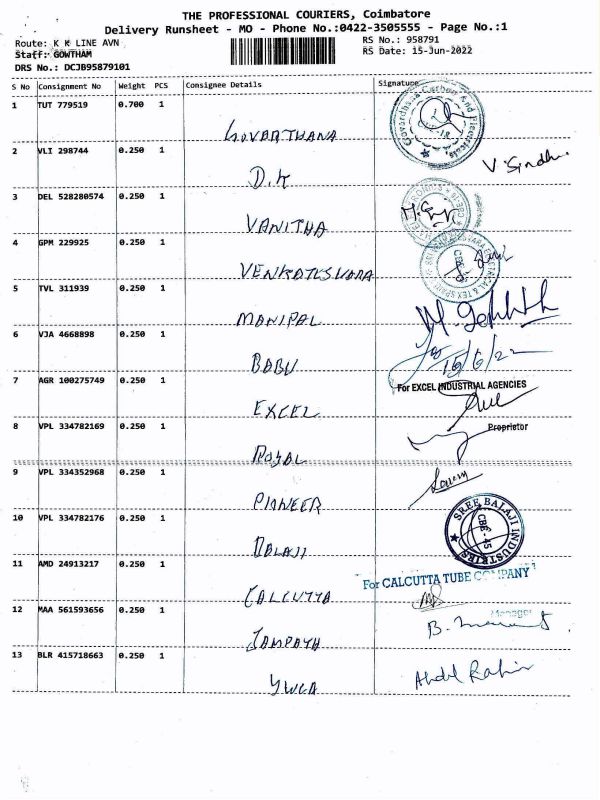 THE PROFESSIONAL COURIERS, Coimbatore
Delivery Runsheet - MO - Phone No.:0422-3505555 - Page No.:1
Route: K K LINE AVN RS No.: 958791
Staff: GOWTHAM RS Date: 15-Jun-2022
DRS No.: DCJB95879101
S No Consignment No Weight PCS Consignee Details Signature
1 TUT 779519 0.700 1
GOVARTHANA
2 VLI 298744 0.250 1
D.K V. Sindhu
3 DEL 528280574 0.250 1
VANITHA
4 GPM 229925 0.250 1
VENKATESVARA
5 TVL 311939 0.250 1
MANIPAL
6 VJA 4668898 0.250 1
BABU
7 AGR 100275749 0.250 1 For EXCEL INDUSTRIAL AGENCIES
EXCEL
8 VPL 334782169 0.250 1 Proprietor
ROYAL
9 VPL 334352968 0.250 1
PIONEER
10 VPL 334782176 0.250 1 SREE BALAJI INDUSTRIES CBE-45
BALAJI
11 AMD 24913217 0.250 1 For CALCUTTA TUBE COMPANY
CALCUTTA
12 MAA 561593656 0.250 1 Manager
SAMPATH
13 BLR 415718663 0.250 1 Abdul Rahim
YWCA